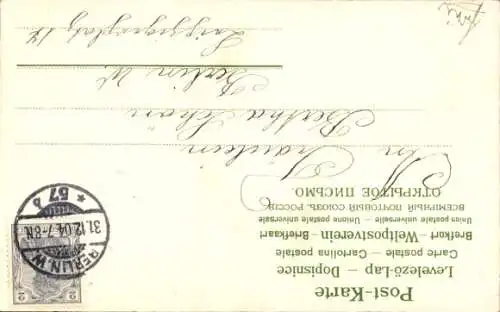 Post-Karte
Levelező-Lap — Dopisnice
Carte postale — Cartolina postale
Brefkort — Weltpostverein — Briefkaart
Union postale universelle — Unione postale universale
ВСЕМІРНЫЙ ПОЧТОВЫЙ СОЮЗЪ РОССІЯ
ОТКРЫТОЕ ПИСЬМО.
BERLIN.W.
31.12.04.7-8N.
* 57 b
2 2
An
Fräulein
Bertha Schön
Berlin W.